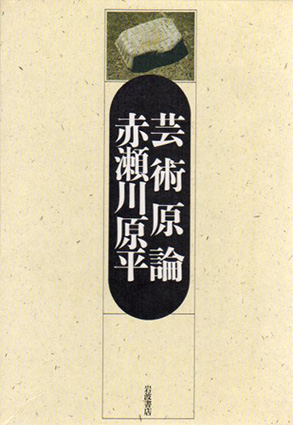 芸術原論
赤瀬川原平
岩波書店